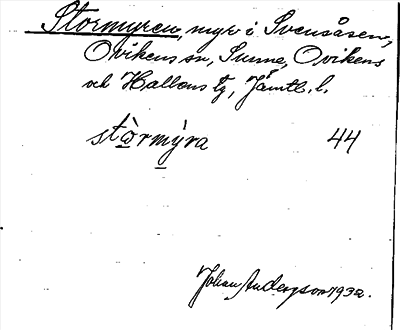 Stormyren, myr i Svensåsen,
Ovikens sn, Sunne, Ovikens
och Hallens tg, Jämtl. l.
stòrmýra 44
Johan Anderson 1932.